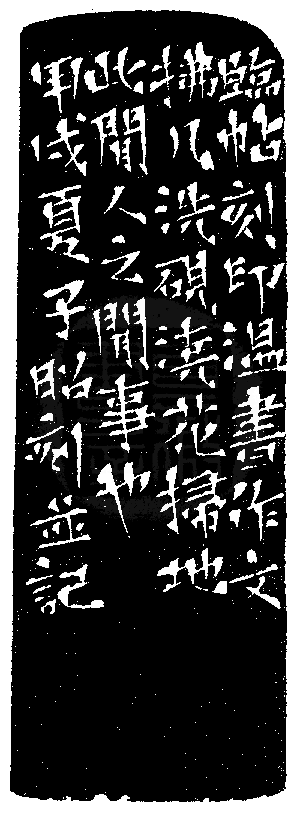 臨帖刻印溫書作文
拂几洗硯澆花掃地
此閒人之閒事也
甲戌夏子昭刻並記